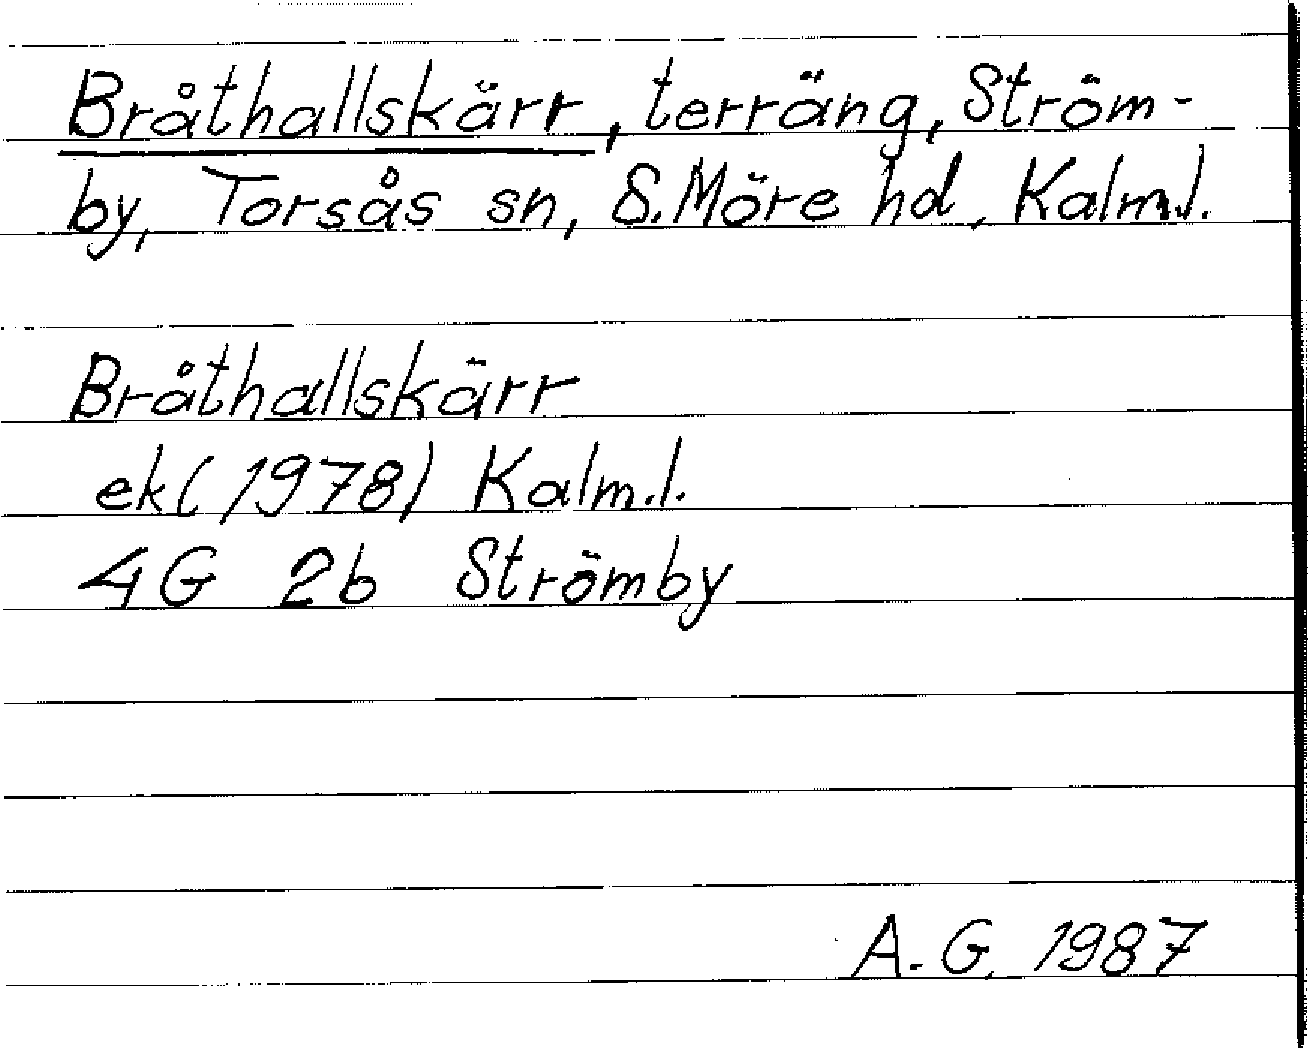 Bråthallskärr, terräng, Ström-
by, Torsås sn, S. Möre hd, Kalm.l.
Bråthallskärr
ek (1978) Kalm.l.
4G 2b Strömby
A.G. 1987